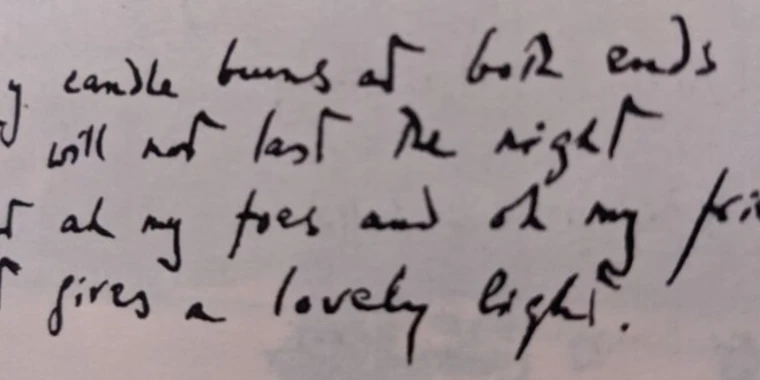 y candle burns at both ends
will not last the night
t ah my foes and oh my fri
t gives a lovely light.